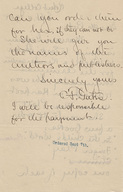 Can you order them
for her. If they can not be
She will give you
the names of the
authors and publishers
Sincerely yours
I will be responsible
for the payment.